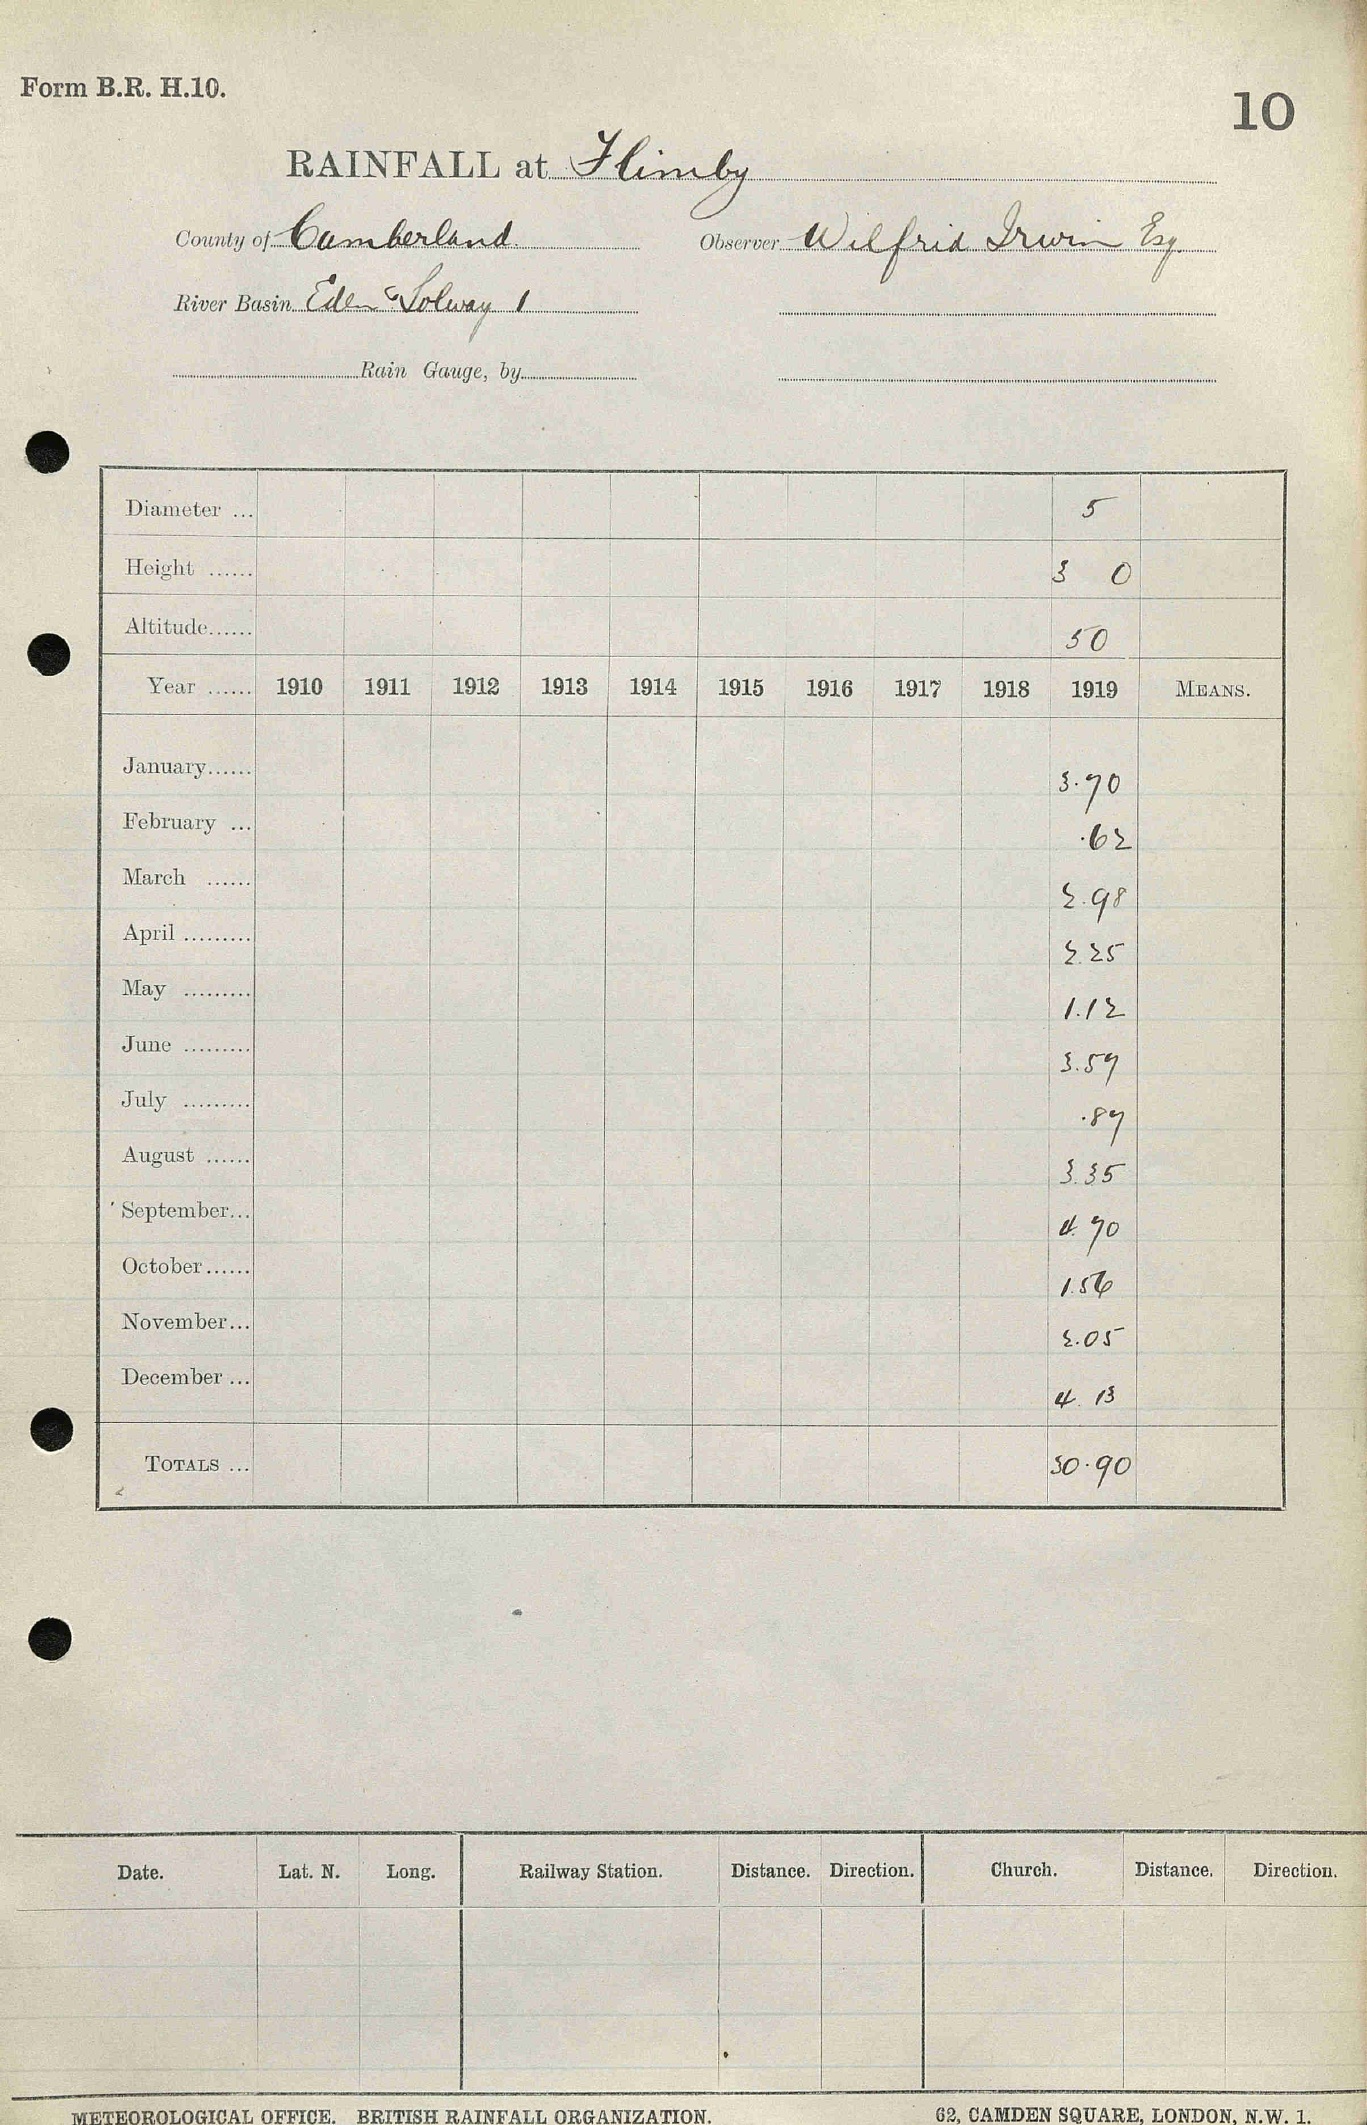 Form B.R. H.10.
10
RAINFALL at Flimby
County of Cumberland. Observer Wilfrid Irwin Esq.
River Basin Eden & Solway 1
Rain Gauge, by
Diameter ... 5
Height ...... 3 0
Altitude...... 50
Year ...... 1910 1911 1912 1913 1914 1915 1916 1917 1918 1919 MEANS.
January...... 3.70
February ... .62
March ...... 2.98
April ......... 2.25
May ......... 1.12
June ......... 3.57
July ......... .87
August ...... 3.35
September... 4.70
October...... 1.56
November... 2.05
December ... 4.13
TOTALS ... 30.90
Date. Lat. N. Long. Railway Station. Distance. Direction. Church. Distance. Direction.
METEOROLOGICAL OFFICE. BRITISH RAINFALL ORGANIZATION. 62, CAMDEN SQUARE, LONDON, N.W. 1.